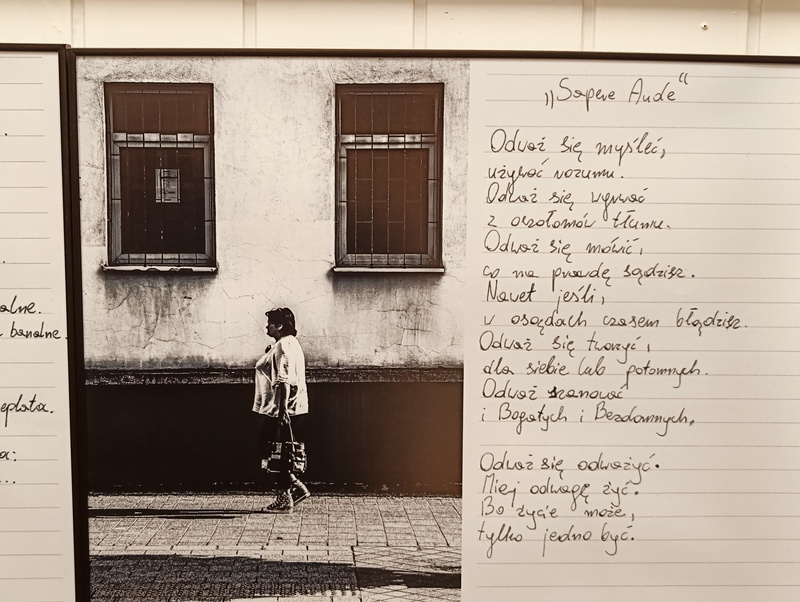 alne.
banalne.
eplata.
a:
...
„Sapere Aude“
Odważ się myśleć,
używać rozumu.
Odważ się wyrwać
z oszołomów tłumu.
Odważ się mówić,
co na prawdę sądzisz.
Nawet jeśli,
w osądach czasem błądzisz.
Odważ się tworzyć,
dla siebie lub potomnych.
Odważ szanować
i Bogatych i Bezdomnych.
Odważ się odważyć.
Miej odwagę żyć.
Bo życie może,
tylko jedno być.